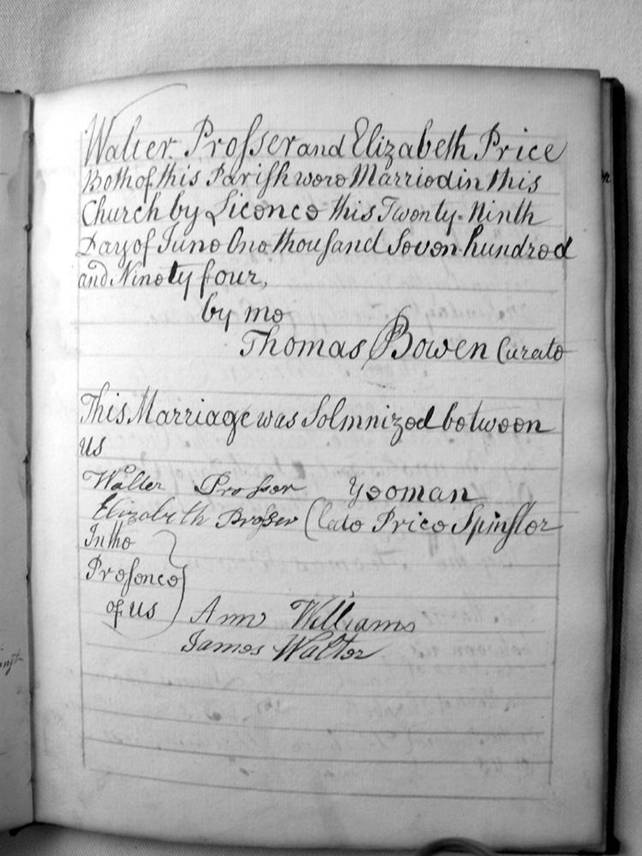 Walter Prosser and Elizabeth Price
Both of this Parish were Married in this
Church by Licence this Twenty-Ninth
Day of June One thousand Seven hundred
and Ninety four,
by me
Thomas Bowen Curate
This Marriage was Solmnized between
us
Walter Prosser Yeoman
Elizabeth Prosser (late Price Spinster
In the
Presence
of us
Ann Williams
James Walter